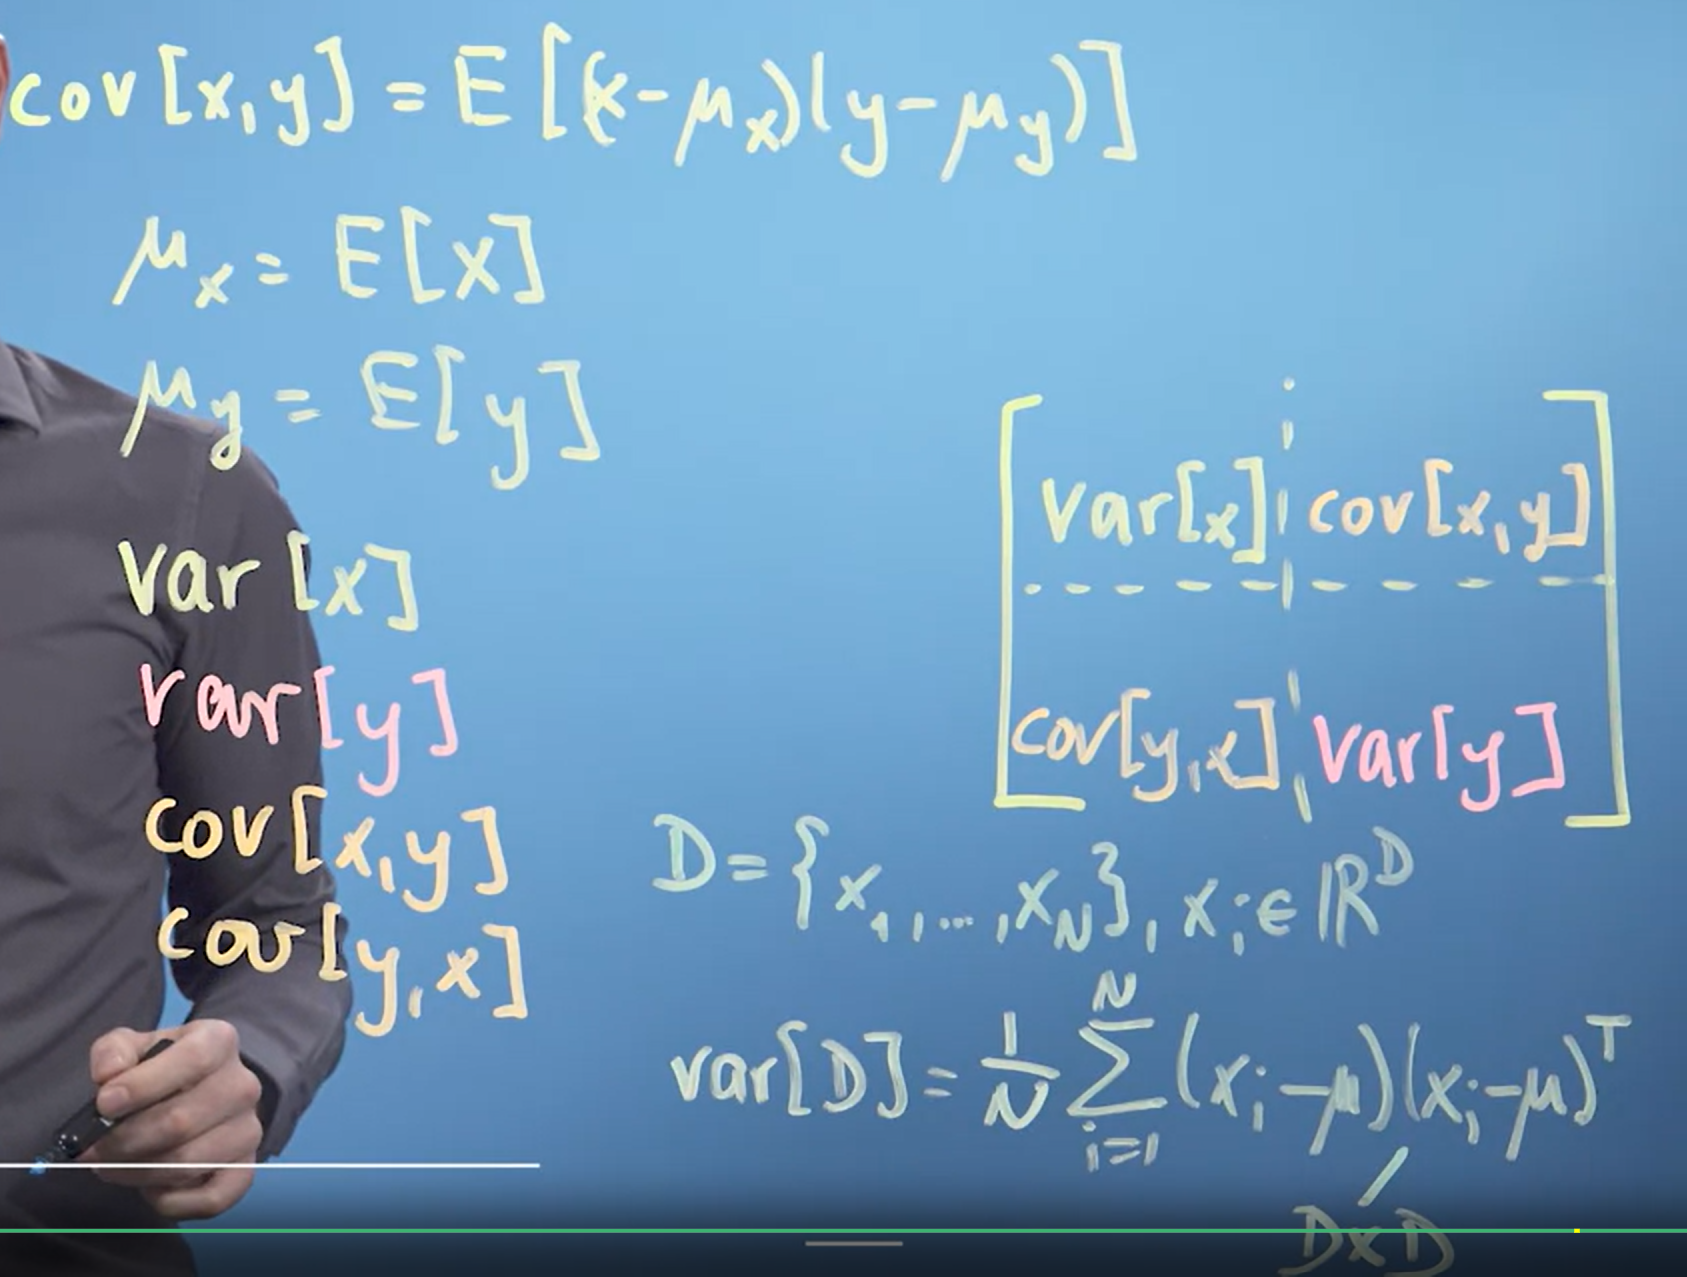 cov[x,y] = E[(x-μx)(y-μy)]
μx = E[x]
μy = E[y]
var[x]
var[y]
cov[x,y]
cov[y,x]
var[x] cov[x,y]
cov[y,x] var[y]
D={x1,...,xN}, xi∈ℝ^D
var[D] = 1/N ∑_{i=1}^{N} (xi-μ)(xi-μ)^T
DxD